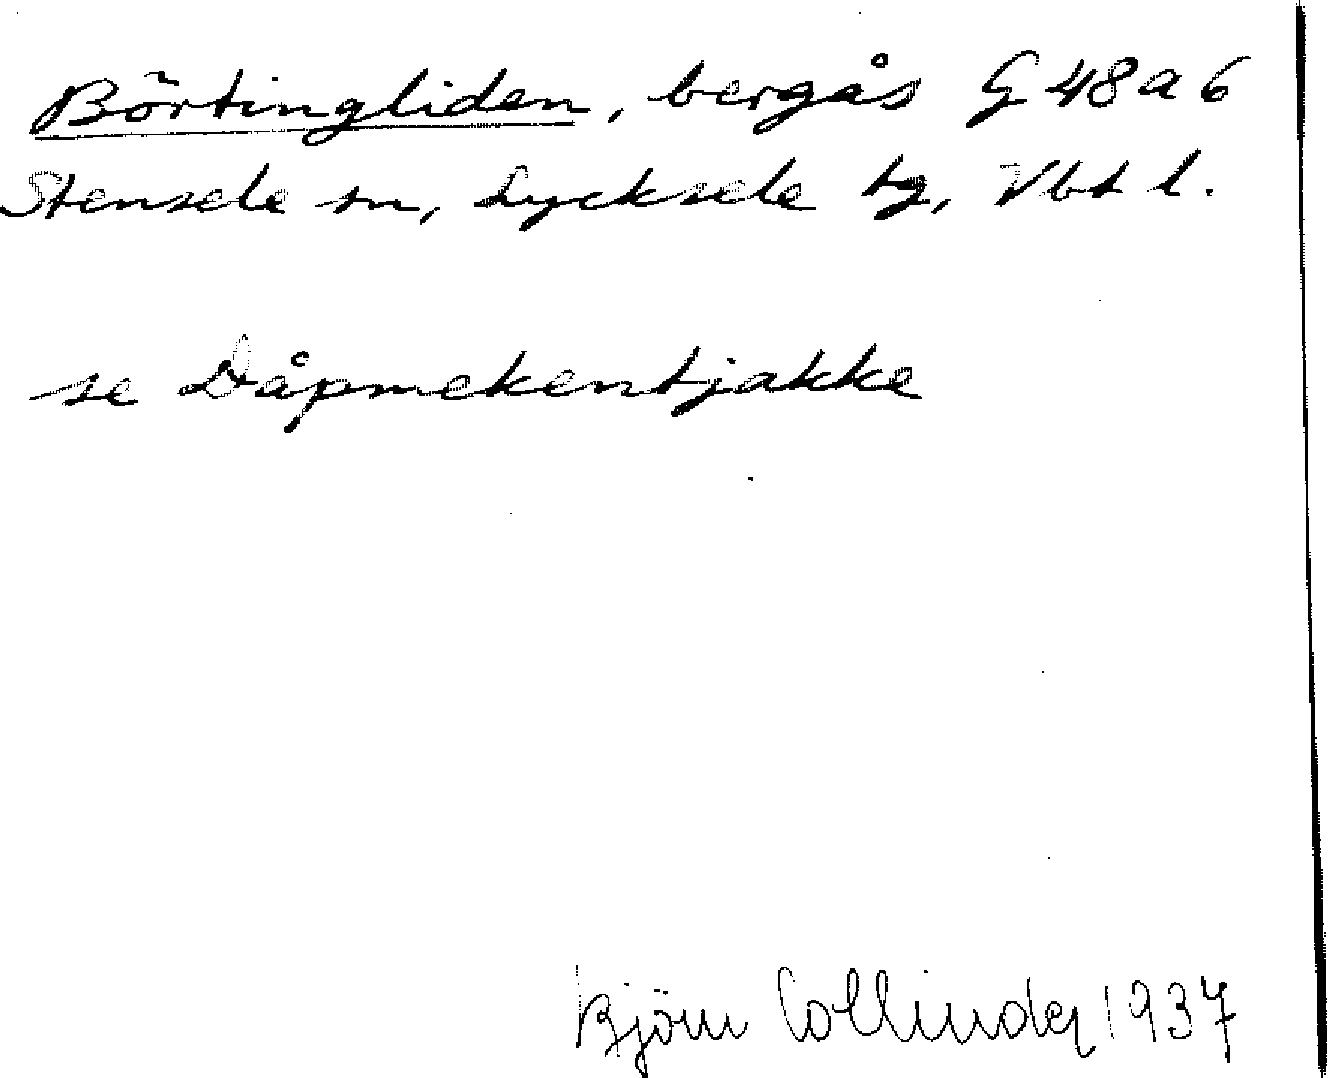 Börtingliden, bergås G 48 a 6
Stensele sn, Lycksele tg, Vbt l.
se Dåpmekentjakke
Björn Collinder 1937